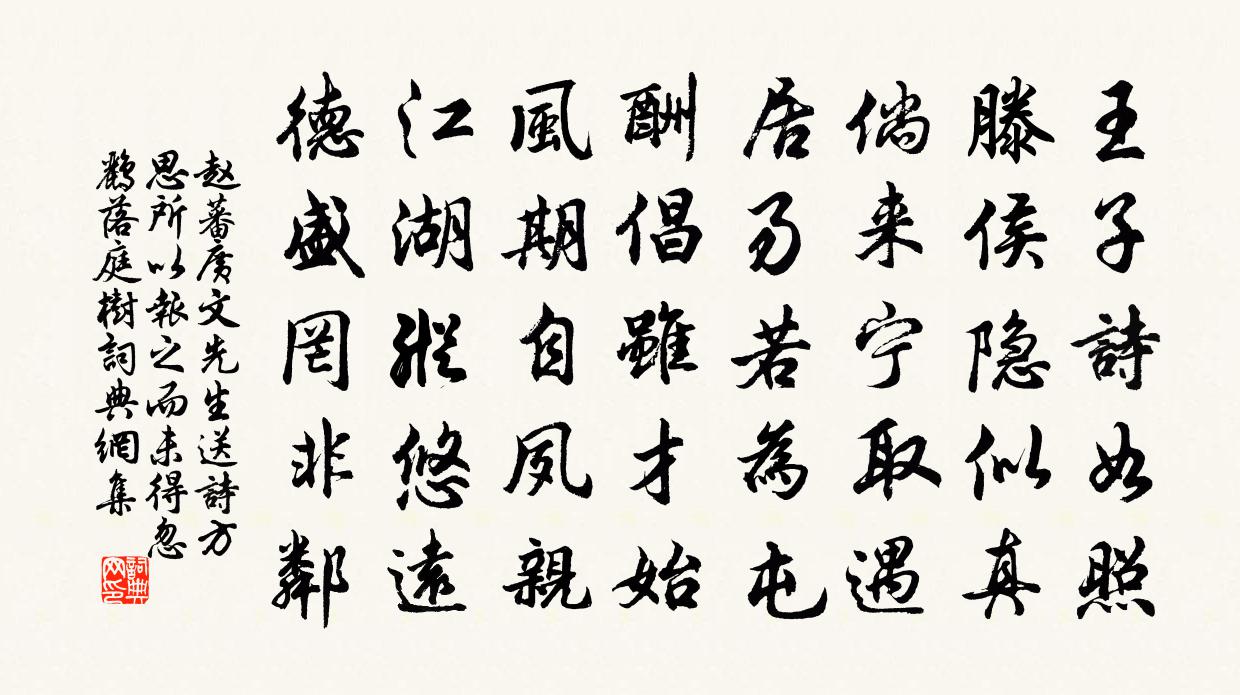 王子詩如照
滕侯隐似真
倘来宁取遇
居易若為屯
酬倡雖才始
風期自夙親
江湖縱悠遠
德盛罔非鄰
赵蕃廣文先生送詩方
思所以報之而未得忽
鶴落庭樹詞典網集
詞典
网印